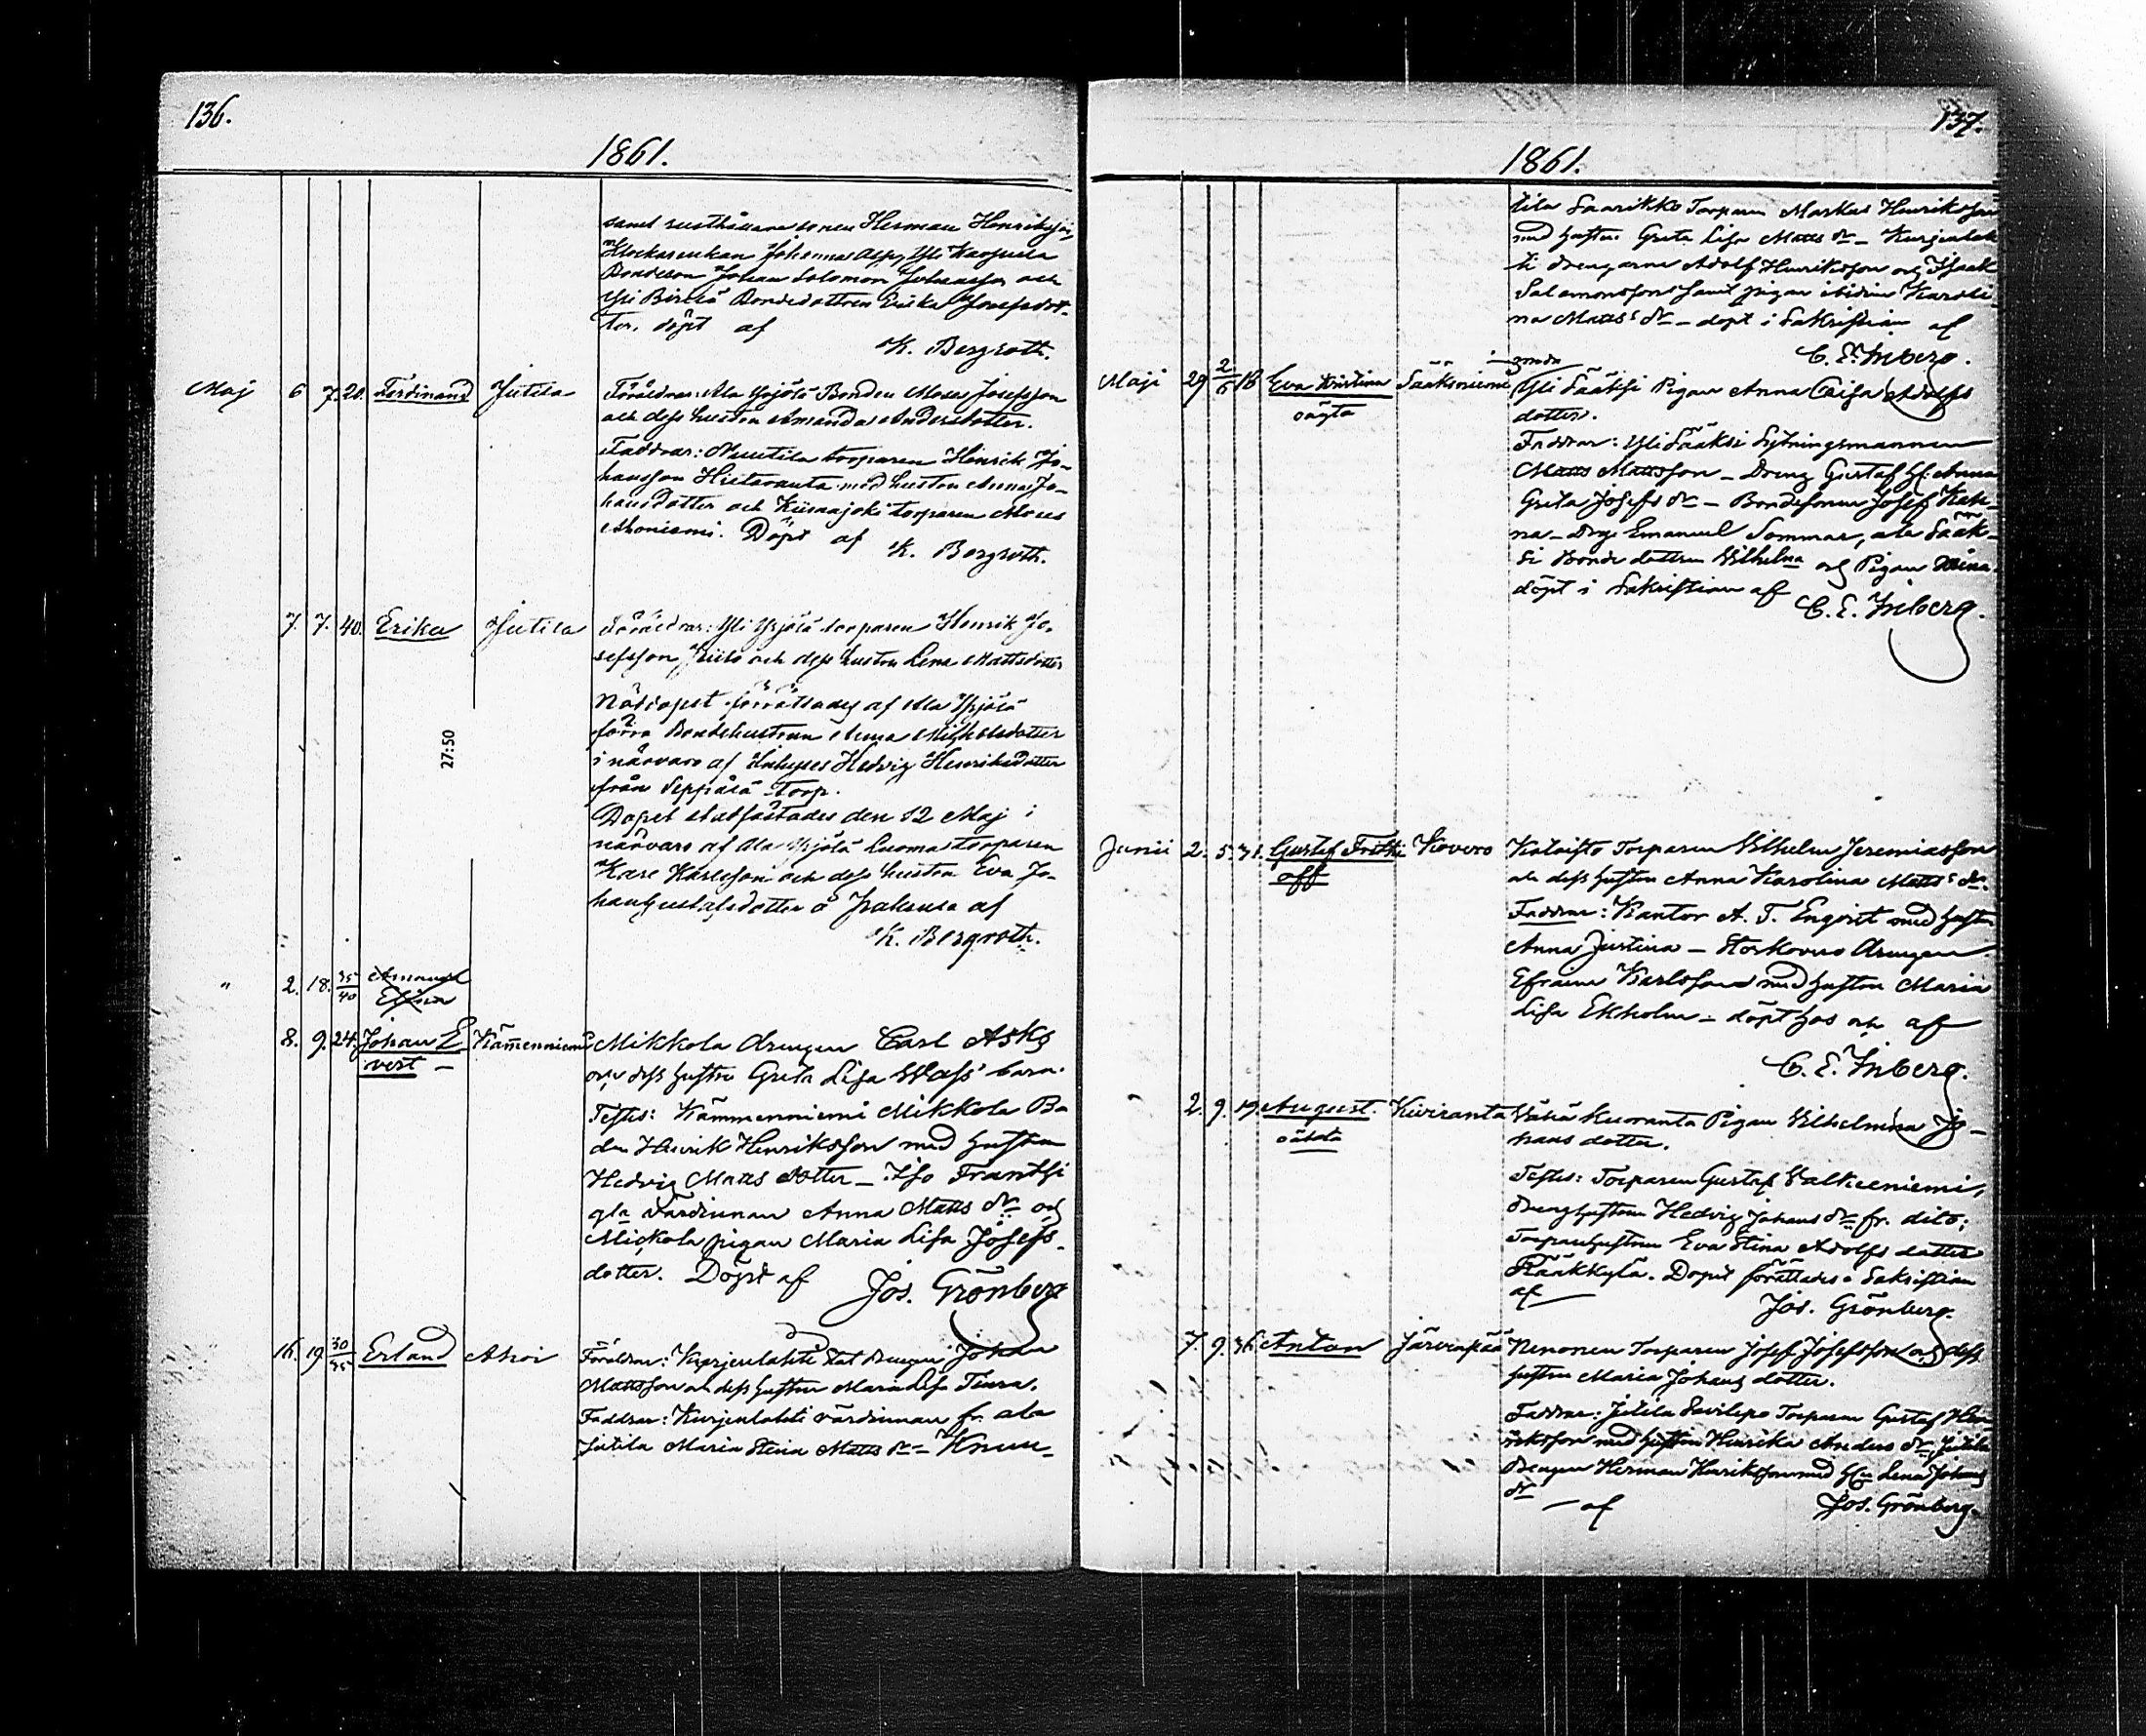 136.
1861.
samt rusthållaresonen Herman Henriksson,
Klockarenkan Johanna Asp, Yli
Bondeson Johan Salomon Johansson och
Yli Bondedottren Erika Josefsdot-
ter, döpt af
K. Bergroth.
Maj 6 7. 20. Ferdinand Jutila Föräldrar: Ala Ypjölä Bonden Moses Josefsson
och dess hustru Amanda Andersdotter.
Faddrar: Nuutila torparen Henrik Jo-
hansson Hietaranta med hustru Anna Jo-
hansdotter och torparen Moses
Ahoniemi. Döpt af
K. Bergroth.
7. 7. 40. Erika Jutila Föräldrar: Yli Ypjölä torparen Henrik Jo-
sefsson och dess hustru Lena Mattsdotter
Nöddopet förrättades af Ala Ypjölä
förra Bondehustrun Anna Michelsdotter
i närvaro af Hedvig Henriksdotter
från Seppälä Torp.
Dopet stadfästades den 12 Maj i
närvaro af Ala Ypjölä Luoma torparen
Karl Karlsson och dess hustru Eva Jo-
hanGustafsdotter å af
K. Bergroth.
27:50
" 2. 18. 35/40 Amanda
8. 9. 24. Johan E Kämenniemi Mikkola drengen Carl Ask
vert och dess hustru Greta Lisa Wass' barn.
Testes: Kämmenniemi Mikkola Bo
den Henrik Henriksson med hustrun
Hedvig Matts dotter – Iso Frantsi
gla värdinnan Anna Matts dr och
Mickola pigan Maria Lisa Josefs-
dotter. Döpt af Jos. Grönberg
16. 19. 30/35 Erland Ahoi Föräldrar: Kurjenlahti Stat drengen Johan
Mattsson och dess hustru Maria Lisa Tiura.
Faddrar: Kurjenlahti värdinnan fr. Ala
Jutila Maria Stina Matts dr – Knuu-
137.
1861.
tila Saarikko Torparen Markus Henriksson
med hustru Greta Lisa Matts dr – Kurjenlah
ti drengarne Adolf Henriksson och Isaak
Salomonsson samt pigan ibidem Karoli-
na Matts' dr – döpt i Sakristian af
C. E. Inberg.
Maji 29 2/6 18 Eva Kristina Sääksniemi Yli Sääksi Pigan Anna Caisa Adolfs
oägta dotter.
Faddrar: Yli Sääksi Sytningsmannen
Matts Mattsson – Dreng Gustaf H: Anna
Greta Josefs dr – Bondesonen Josef
na – Dreng Emanuel Sommar, Ala Sääk-
si Bonde dottren Vilhelma och Pigan
döpt i Sakristian af
C. E. Inberg.
Junii 2. 5. 31. Gustaf Fritti Kovero Kataisto Torparen Vilhelm Jeremiasson
off och dess hustru Anna Karolina Matts' dr.
Faddrar: Kantor A. T. Engvist med hustru
Anna Justina – Storkovero drengen
Efraim Karlsson med hustru Maria
Lisa Ekholm – döpt hos af
C. E. Inberg.
2. 9. 19. August. Kiviranta Vähä Kuoranta Pigan Vilhelmina Jo-
oäkta hans dotter.
Testes: Torparen Gustaf Valkeeniemi,
Drenghustrun Hedvig Johans dr fr. dito;
Torparehustrun Eva Stina Adolfs dotter
Rääkkylä. Dopet förrättades i Sakristian
af Jos. Grönberg.
7. 9. 36. Anton Järvenpää Nenonen Torparen Josef Josefsson och dess
hustru Maria Johans dotter.
Faddrar: Jutila Savilepo Torparen Gustaf Hen
riksson med hustru Henrika Anders dr, Jutila
Drengen Herman Henriksson med H:u Lena Johans
dr – af Jos. Grönberg.